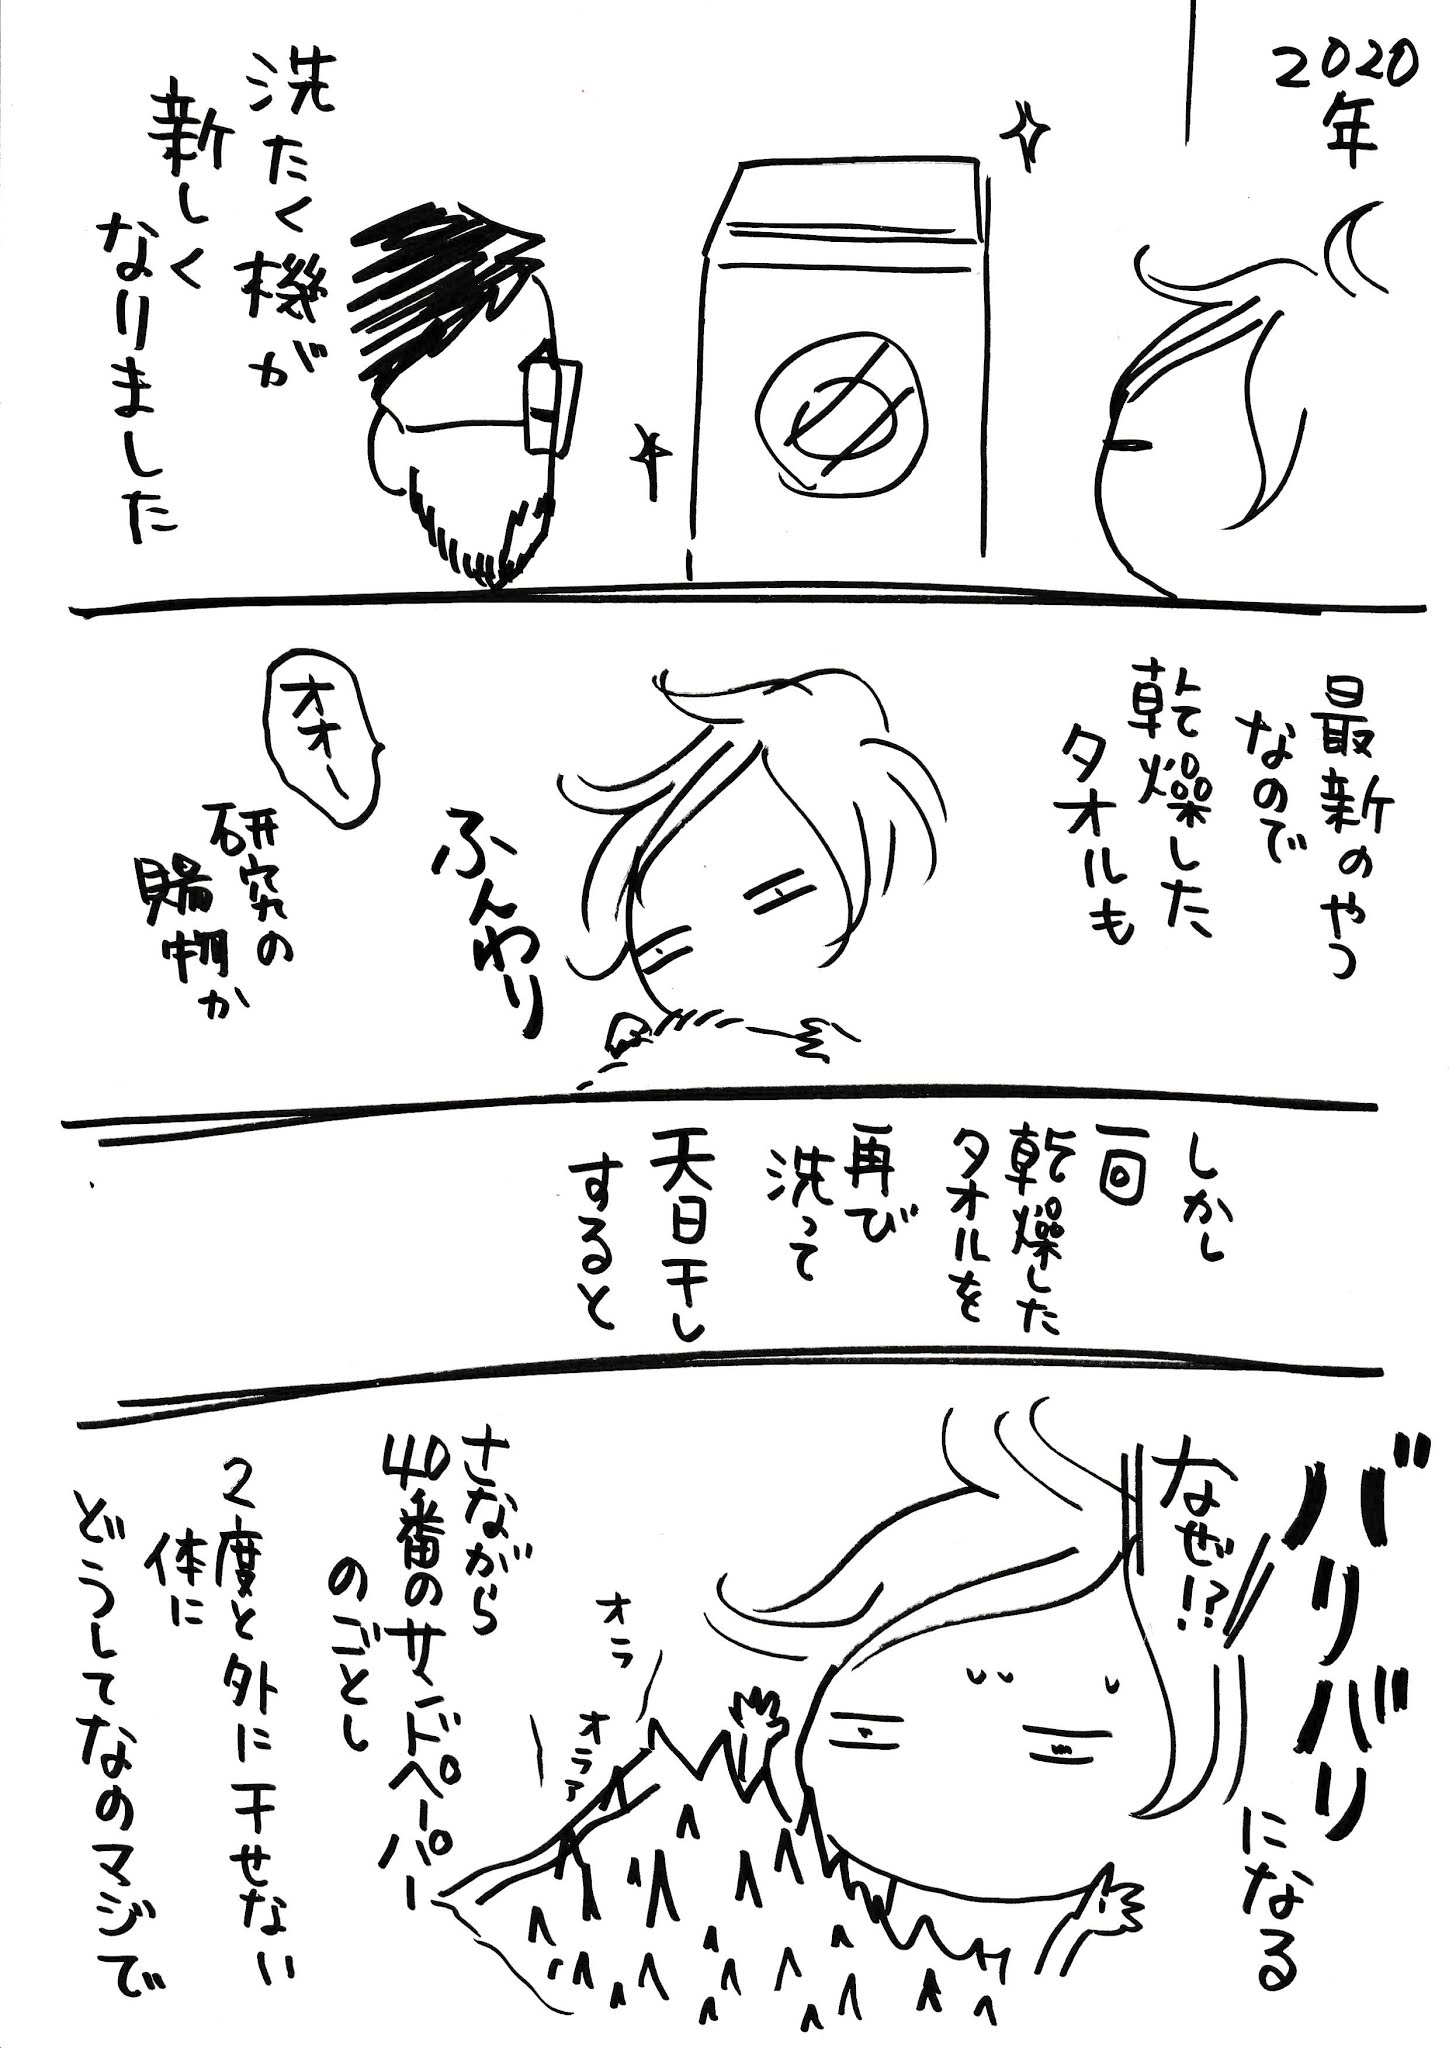 2020
年
洗たく機が
新しく
なりました
最新のやつ
なので
乾燥した
タオルも
ふんわり
オオー
研究の
賜物か
しかし
一回
乾燥した
タオルを
再び
洗って
天日干し
すると
バリバリ
になる
なぜ!?
オラ
オラァ
さながら
40番のサンドペーパー
のごとし
2度と外に干せない
体に
どうしてなのマジで